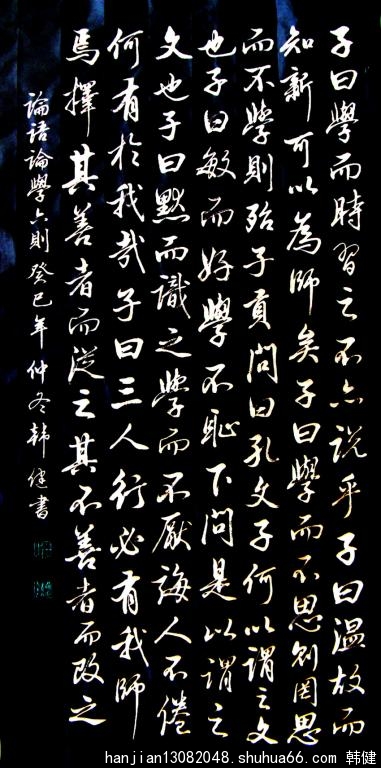 子曰學而時習之不亦說乎子曰溫故而
知新可以為師矣子曰學而不思則罔思
而不學則殆子貢問曰孔文子何以謂之文
也子曰敏而好學不耻下問是以謂之
文也子曰默而識之學而不厭誨人不倦
何有於我哉子曰三人行必有我師
焉擇其善者而從之其不善者而改之
論語論學六則癸巳年仲冬韓健書
hanjian13082048.shuhua66.com 韩健